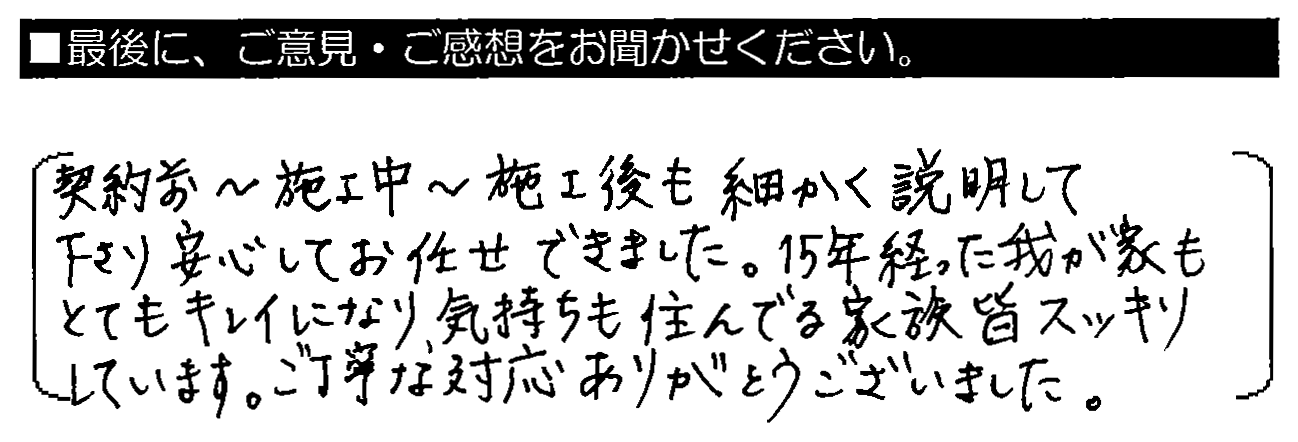 ■最後に、ご意見・ご感想をお聞かせください。
契約前～施工中～施工後も細かく説明して
下さり安心してお任せできました。15年経った我が家も
とてもキレイになり、気持ちも住んでる家族皆スッキリ
しています。ご丁寧な対応ありがとうございました。